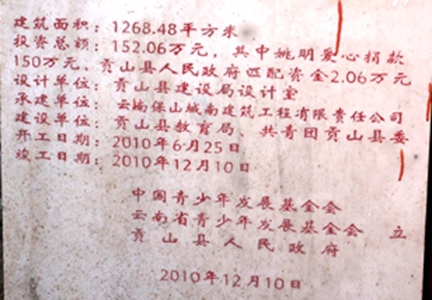 建筑面积：1268.48平方米
投资总额：152.06万元，其中姚明爱心捐款
150万元，贡山县人民政府匹配资金2.06万元
设计单位：贡山县建设局设计室
承建单位：云南保山城南建筑工程有限责任公司
建设单位：贡山县教育局、共青团贡山县委
开工日期：2010年6月25日
竣工日期：2010年12月10日
中国青少年发展基金会
云南省青少年发展基金会 立
贡山县人民政府
2010年12月10日